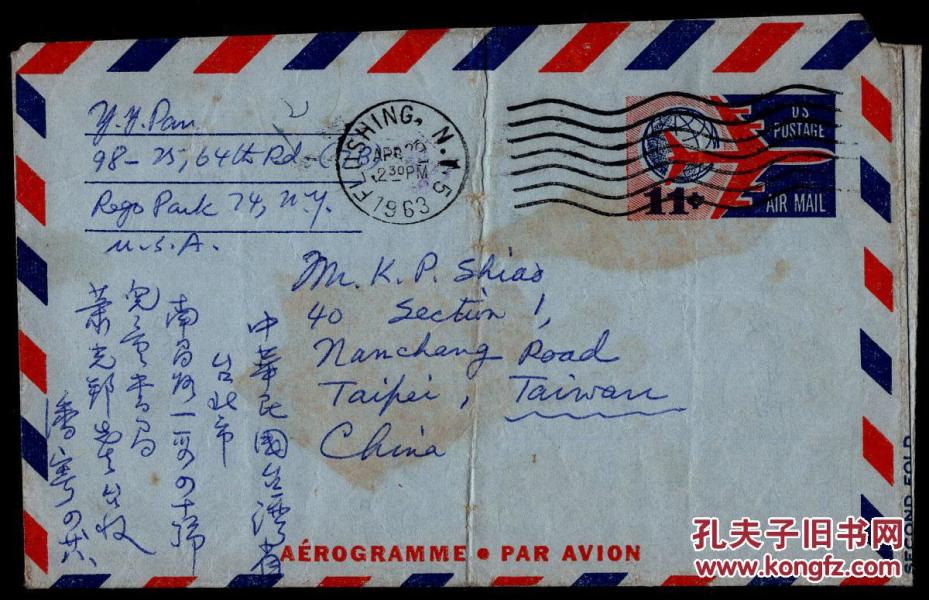 Y. Y. Pan
98-25, 64th Rd
Rego Park 74, N.Y.
U.S.A.
FLUSHING, N.Y.
APR 29
2 30 PM
1963
US
POSTAGE
11¢
AIR MAIL
Mr. K. P. Shiao
40 Section 1,
Nanchang Road
Taipei, Taiwan
China
中華民國台灣省
台北市
南昌路一段四十號
書局
蕭克邦先生收
潘寄
AÉROGRAMME • PAR AVION
SECOND FOLD
孔夫子旧书网
www.kongfz.com